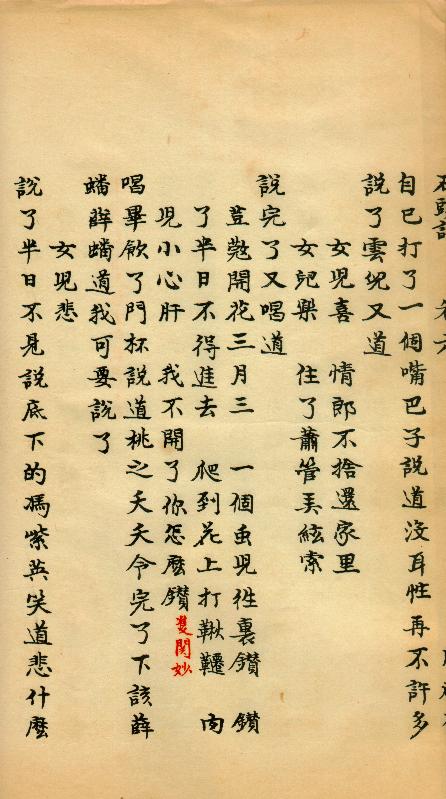 自己打了一個嘴巴子說道沒耳性再不許多
說了雲兒又道
女兒喜　情郎不捨還家里
女兒樂　住了蕭管弄絃索
說完了又唱道
荳𦭛開花三月三　一個虫兒徃裏鑽　鑽
了半日不得進去　爬到花上打鞦韆　肉
兒小心肝　我不開了你怎麽鑽雙関妙
唱畢飲了門杯說道桃之夭夭令完了下該薛
蟠薛蟠道我可要說了
女兒悲
說了半日不見說底下的馮紫英笑道悲什麽